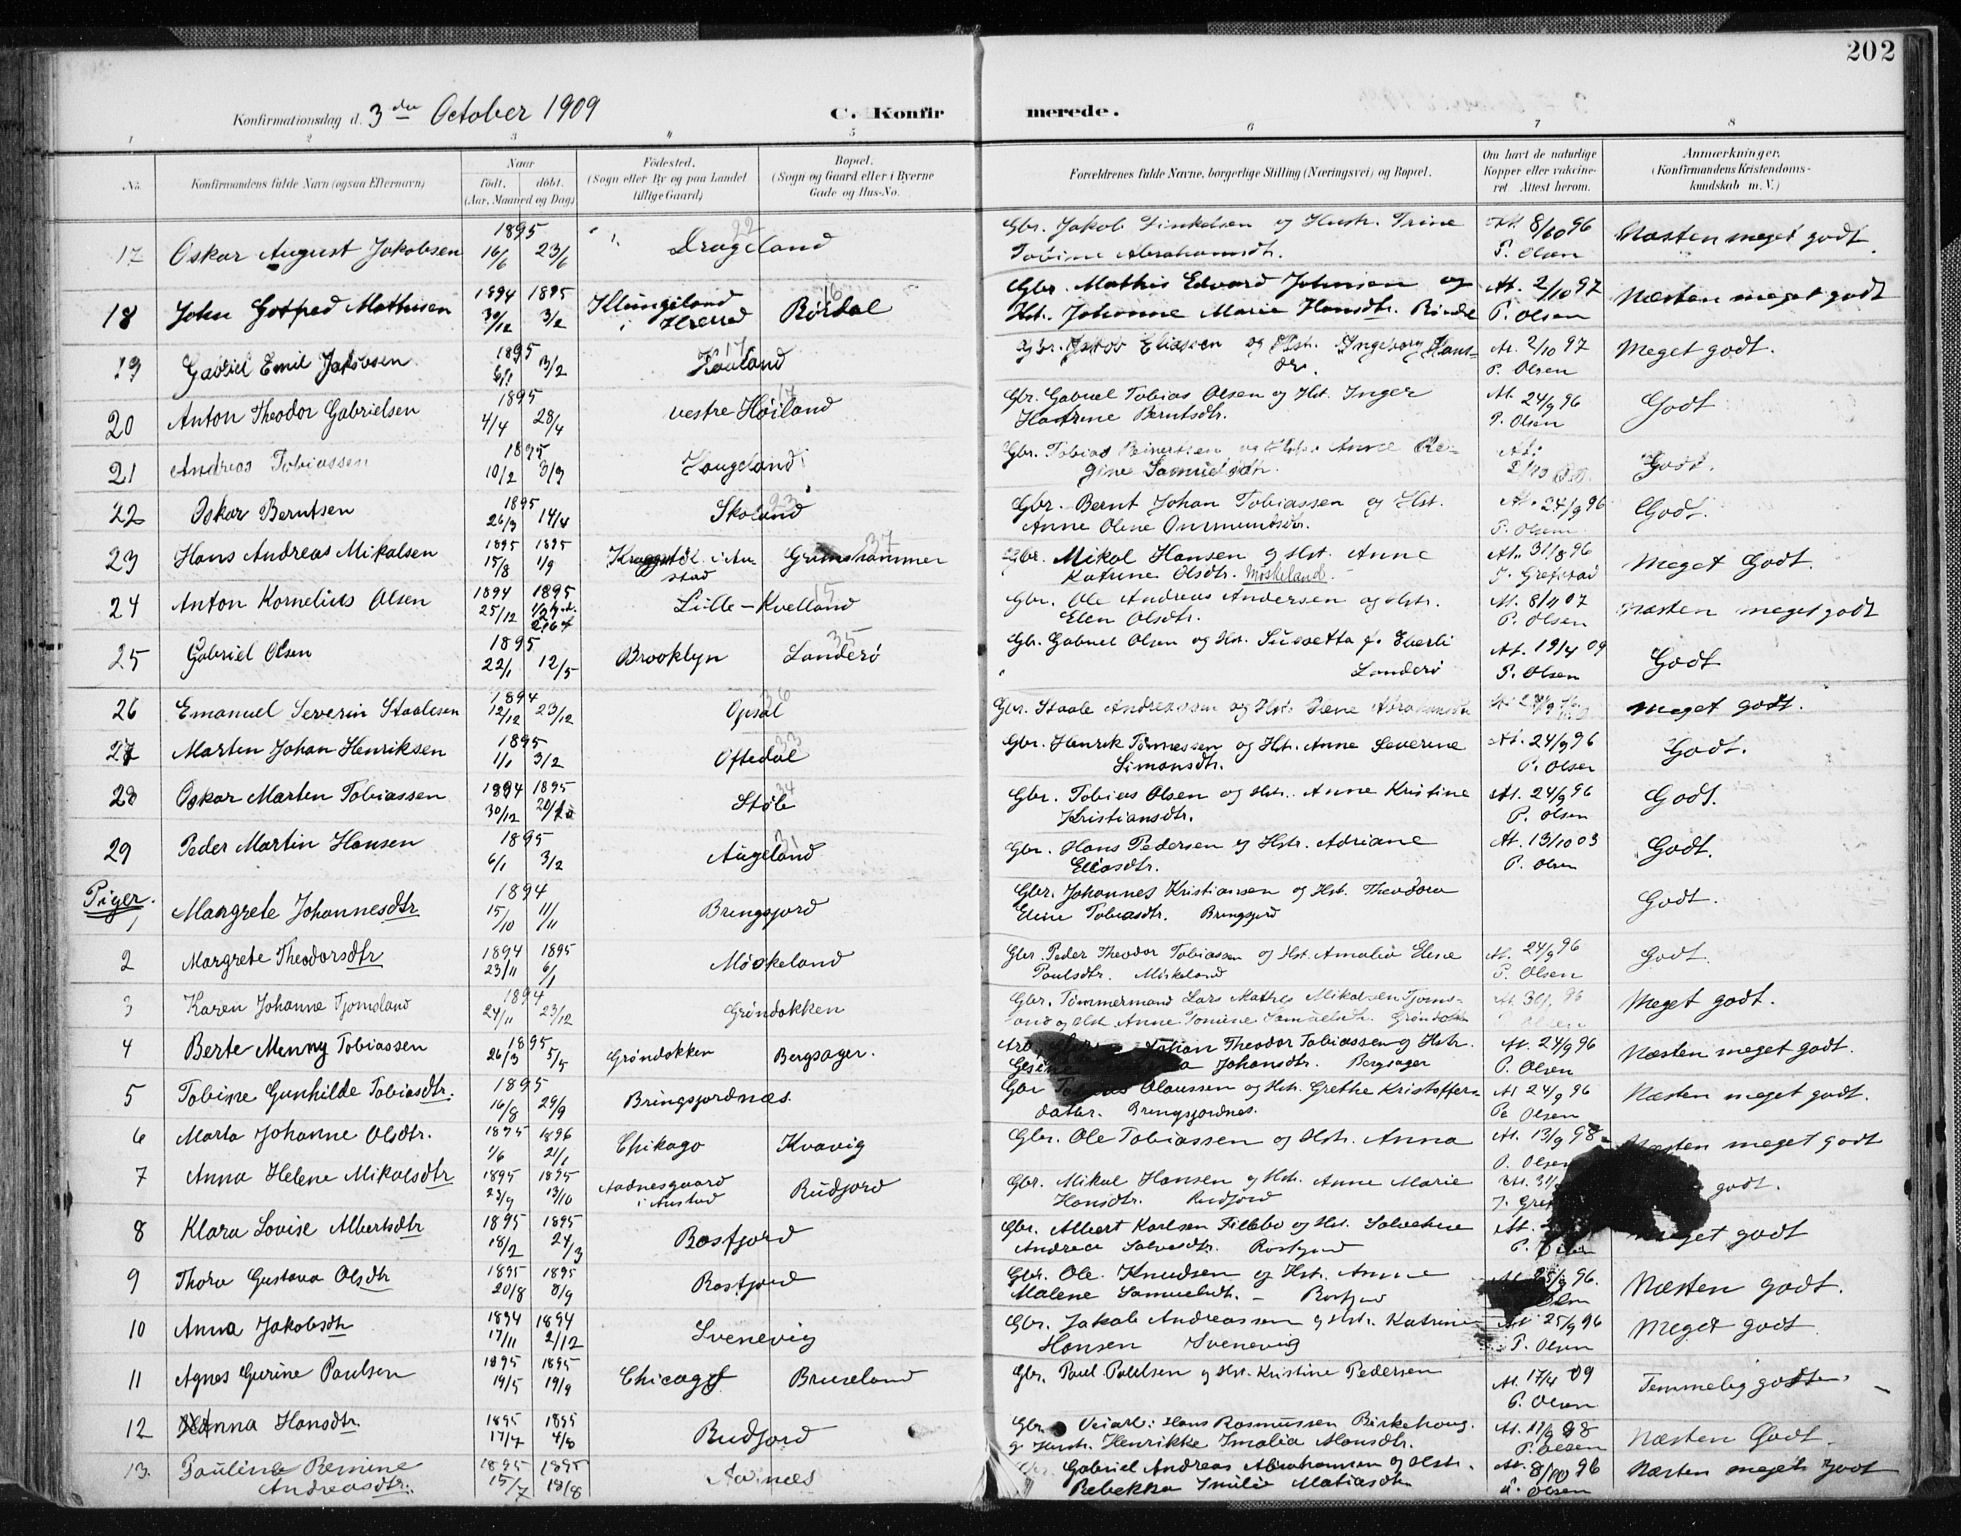 202
Konfirmationsdag d. 3die October 1909 C. Konfir merede.
1 2 3 4 5 6 7 8
No. Konfirmandens fulde Navn (ogsaa Efternavn) Naar født. døbt. (Aar, Maaned og Dag) Fødested. (Sogn eller By og paa Landet tillige Gaard) Bopæl. (Sogn og Gaard eller i Byerne Gade og Hus-No. Forældrenes fulde Navne, borgerlige Stilling (Næringsvei) og Bopæl. Om havt de naturlige Kopper eller vakcineret Attest herom. Anmærkninger. (Konfirmandens Kristendomskundskab m. V.)
17 Oskar August Jakobsen 1895 16/6 23/6 Drageland 22 Gbr. Jakob og Hustr. Trine At. 8/10 96 Næsten meget godt.
Tobine Abrahamsdtr. P. Olsen
18 John Gotfred Mathisen 1894 30/12 1895 3/2 i Herred Rørdal 16 Gbr. Mathis Edvard Johnsen og At. 2/10 97 Næsten meget godt
Hst. Johanne Marie Hansdtr. P. Olsen
19 Gabriel Emil Jakobsen 1895 3/2 17 Gbr. Jakob Eliassen og Hst. Ingeborg Hans- At. 2/10 97 Meget godt.
dtr. P. Olsen
20 Anton Theodor Gabrielsen 1895 4/4 28/4 vestre Høiland 17 Gbr. Gabriel Tobias Olsen og Hst. Inger At. 24/9 96 Godt
Katrine Berntsdtr. P. Olsen
21 Andreas Tobiassen 1895 10/2 3/3 Haugeland Gbr. Tobias Reinertsen og Hst. Anne Re- At. Godt.
gine Samuelsdtr.
22 Oskar Berntsen 1895 26/3 14/4 Skoland 23 Gbr. Bernt Johan Tobiassen og Hst. At. 24/9 96 Godt.
Anne Olene P. Olsen
23 Hans Andreas Mikalsen 1895 15/8 1895 1/9 i Au- Grimshammer 37 Gbr. Mikal Hansen og Hst. Anne At. 31/8 96 Meget Godt.
stad Katrine Olsdtr. Møskeland. J. Grefstad
24 Anton Kornelius Olsen 1894 25/12 1895 Lille-Kvelland 15 Gbr. Ole Andreas Andersen og Hstr. At. 07 Næsten meget godt
Elen Olsdtr. P. Olsen
25 Gabriel Olsen 1895 22/1 12/5 Brooklyn Landerø 35 Gbr. Gabriel Olsen og Hst. At. 19/4 09 Godt
Landerø P. Olsen
26 Emanuel Severin Staalesen 1894 12/12 23/12 Opsal 36 Gbr. Staale Andreassen og Hst. meget godt.
27 Martin Johan Henriksen 1895 1/1 3/2 Oftedal Gbr. Henrik Tønnessen og Hst. Anne Severine At. 24/9 96 Godt.
Simonsdtr. P. Olsen
28 Oskar Martin Tobiassen 1894 30/12 1895 Støle 34 Gbr. Tobias Olsen og Hstr. Anne Kristine At. 24/9 96 Godt.
Kristiansdtr. P. Olsen
29 Peder Martin Hansen 1895 6/1 3/2 Augeland 31 Gbr. Hans Pedersen og Hstr. Adriane At. 13/10 03 Godt.
Eliasdtr. P. Olsen
Piger.
1 Margrete Johannesdtr 1894 15/10 11/11 Bringsjord Gbr. Johannes Kristiansen og Hst. Theodora Godt.
Eline Tobiasdtr. Bringsjord
2 Margrete Theodorsdtr 1894 23/11 1895 6/1 Møskeland Gbr. Peder Theodor Tobiassen og Hst. Amalia Elene At. 24/9 96 Godt.
Paulsdtr. Møskeland P. Olsen
3 Karen Johanne Tjomsland 1894 24/11 23/12 Grøndokken Gbr. Tømmermand Lars Mathis Mikalsen Tjoms- At. 96 Meget godt.
land og Hst. Anne Tomine Samuelsdtr. Olsen
4 Berte Menny Tobiassen 1895 26/3 5/5 Grøndokken Bergsager. Johan Theodor Tobiassen og Hstr. At. 24/9 96 Næsten meget godt.
Johansdtr. Bergsager P. Olsen
5 Tobine Gunhilde Tobiasdtr. 1895 16/8 29/9 Bringsjordnæs. Gbr Olaussen og Hst. Grethe Kristoffers- At 24/9 96 Næsten meget godt.
datter. Bringsjordnes. P. Olsen
6 Marta Johanne Olsdtr. 1895 1/6 1896 21/1 Chikago Kvavig Gbr. Ole Tobiassen og Hstr. Anna At. 13/9 98 Næsten meget godt
P. Olsen
7 Anna Helene Mikalsdtr 1895 23/9 1895 13/10 Aadnesgaard Rudjord Gbr. Mikal Hansen og Hst. Anne Marie At. godt.
i Austad Hansdtr. Rudjord
8 Klara Lovise Albertsdtr 1895 18/2 1895 24/3 Rosfjord Gbr. Albert Karlsen og Hst. At. meget godt
Andrea Salvesdtr. Rosfjord P.
9 Thora Gustava Olsdtr 1895 20/8 1895 8/9 Rosfjord Gbr. Ole Knudsen og Hst. Anne At. 25/9 96. Næsten godt.
Malene Samuelsdtr. - Rosfjord
10 Anna Jakobsdtr 1894 17/11 1894 2/12 Svenevig Gbr. Jakob Andreassen og Hstr. Katrine At 25/9 96 Meget godt
Hansen Svenevig P. Olsen
11 Agnes Gurine Paulsen 1895 19/5 1895 19/9 Chicago Bruseland Gbr. Paul Paulsen og Hst. Kristine Pedersen At. 17/4 09 Temmelig godt
P. Olsen
12 Anna Hansdtr. 1895 17/7 1895 4/8 Rudjord Gbr. Hans Rasmussen Birkehaug. At. 11/9 98 Næsten Godt.
og Hustr. Henrikke Imalia Monsdtr. P. Olsen
13. Pauline Remine 1895 15/7 1895 18/8 Gabriel Andreas Abrahamsen og Hstr. At. 8/10 96 Næsten meget godt
Andreasdtr. Rebekka Imilie Matiasdtr P. Olsen